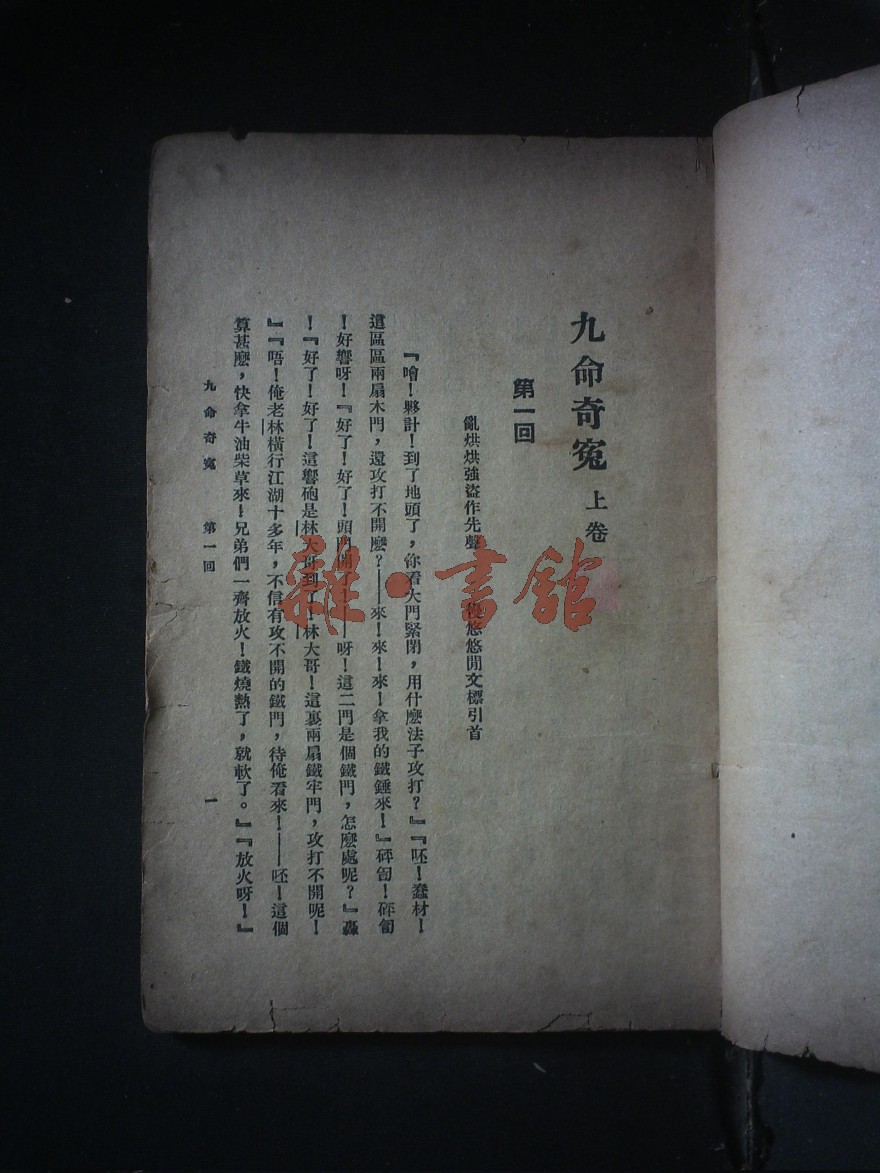 九命奇冤 上卷
第一回
亂烘烘強盜作先聲 慢悠悠閒文標引首
『噲！夥計！到了地頭了，你看大門緊閉，用什麼法子攻打？』『呸！蠢材！
這區區兩扇木門，還攻打不開麼？——來！來！來！拿我的鐵錘來！』砰訇！砰訇
！好響呀！『好了！好了！頭門開了！——呀！這二門是個鐵門，怎麼處呢？』轟
！『好了！好了！這響砲是林大哥到了！林大哥！這裏兩扇鐵牢門，攻打不開呢！
』『唔！俺老林橫行江湖十多年，不信有攻不開的鐵門，待俺看來！——呸！這個
算甚麼，快拿牛油柴草來！兄弟們一齊放火！鐵燒熱了，就軟了。』『放火呀！』
九命奇冤 第一回 一
雜·書館